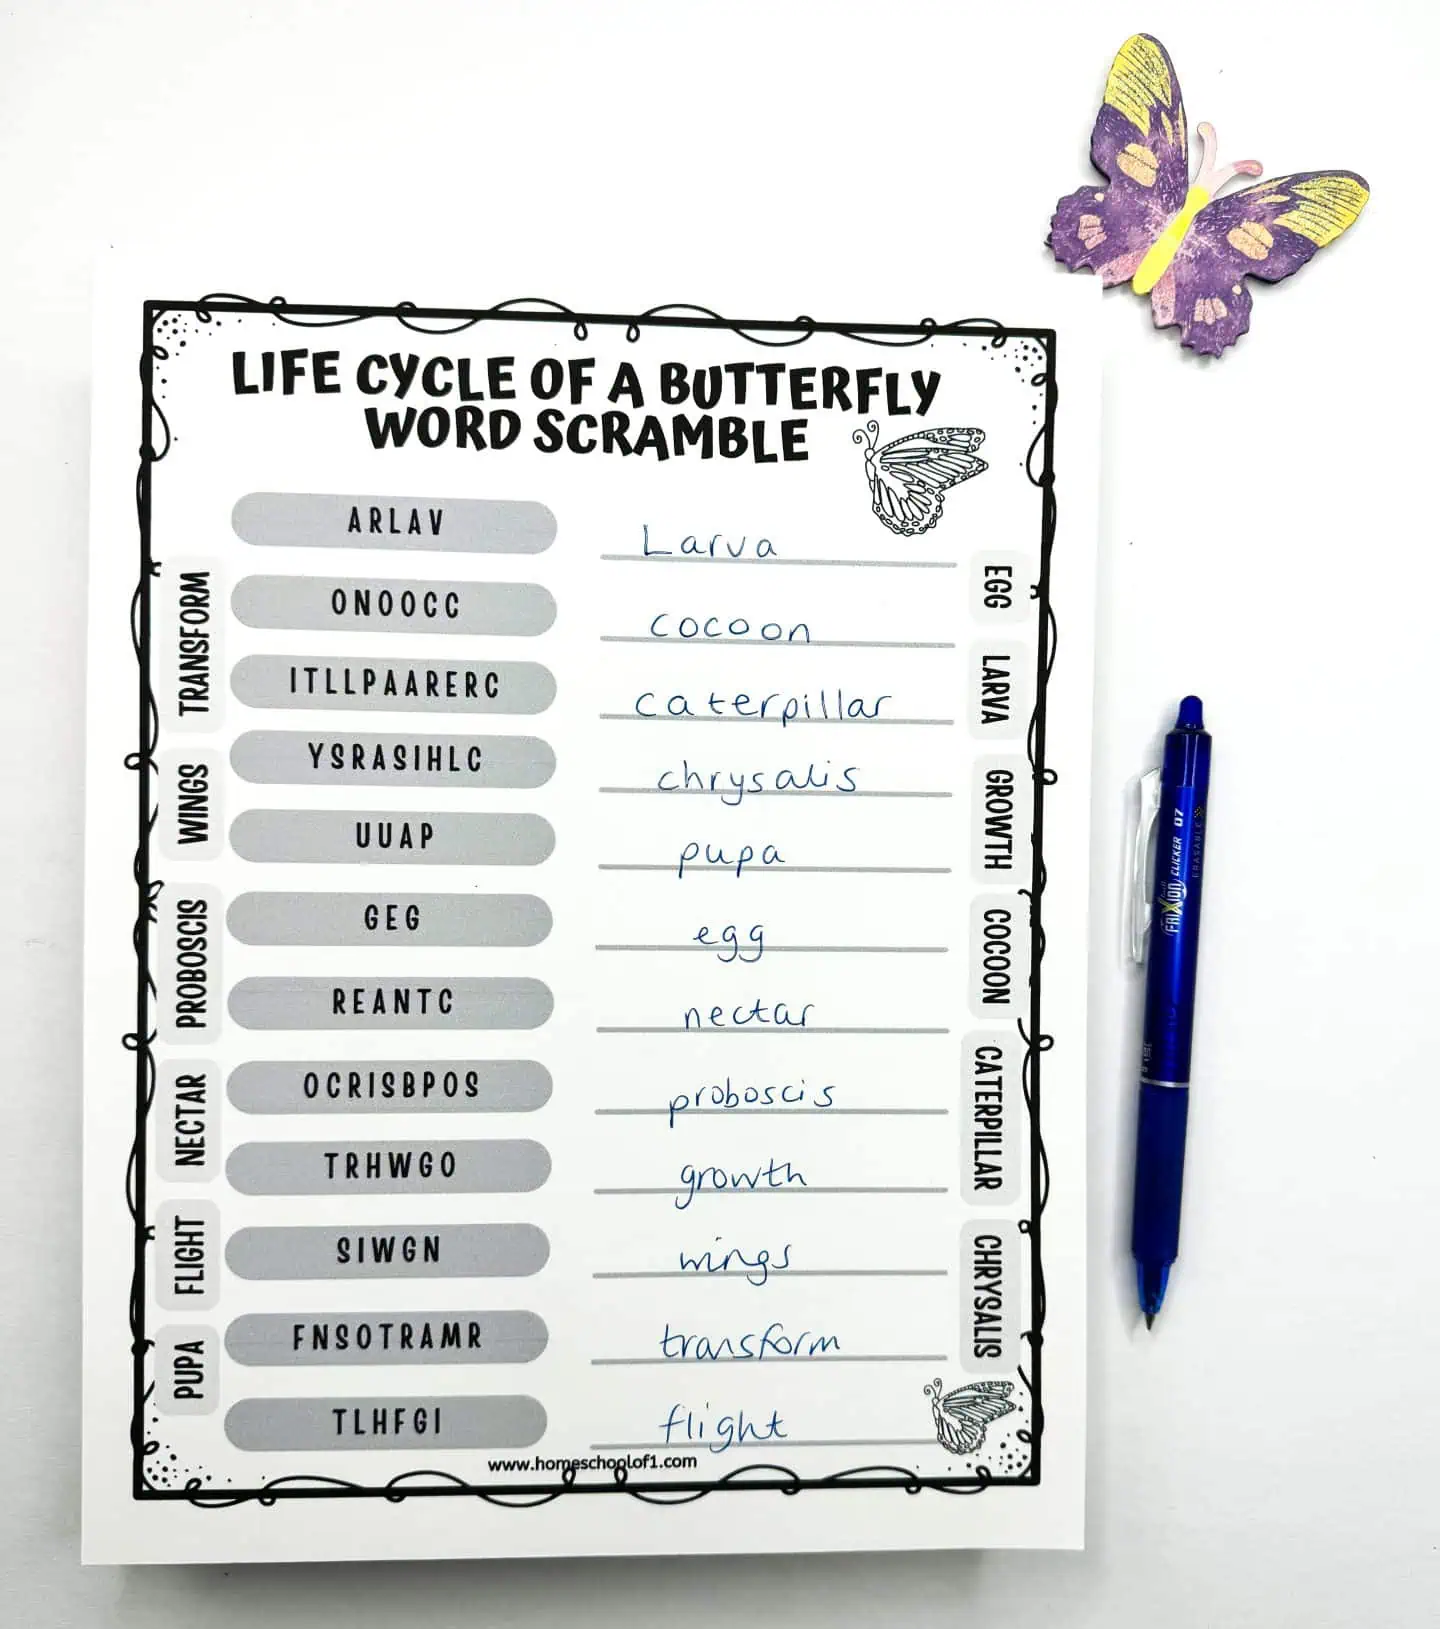 LIFE CYCLE OF A BUTTERFLY
WORD SCRAMBLE
ARLAV
Larva
ONOOCC
cocoon
ITLLPAARERC
caterpillar
YSRASIHLC
chrysalis
UUAP
pupa
GEG
egg
REANTC
nectar
OCRISBPOS
proboscis
TRHWGO
growth
SIWGN
wings
FNSOTRAMR
transform
TLHFGI
flight
TRANSFORM
WINGS
PROBOSCIS
NECTAR
FLIGHT
PUPA
EGG
LARVA
GROWTH
COCOON
CATERPILLAR
CHRYSALIS
www.homeschoolof1.com
FRIXION CLICKER 07
ERASABLE